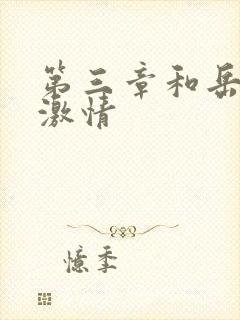 第三章和岳
激情
憶季